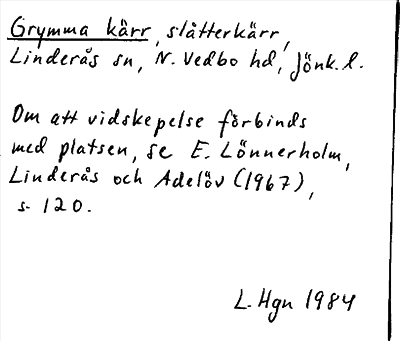 Grymma kärr, slåtterkärr,
Linderås sn, N. Vedbo hd, Jönk. l.
Om att vidskepelse förbinds
med platsen, se E. Lönnerholm,
Linderås och Adelöv (1967),
s. 120.
L. Hgn 1984